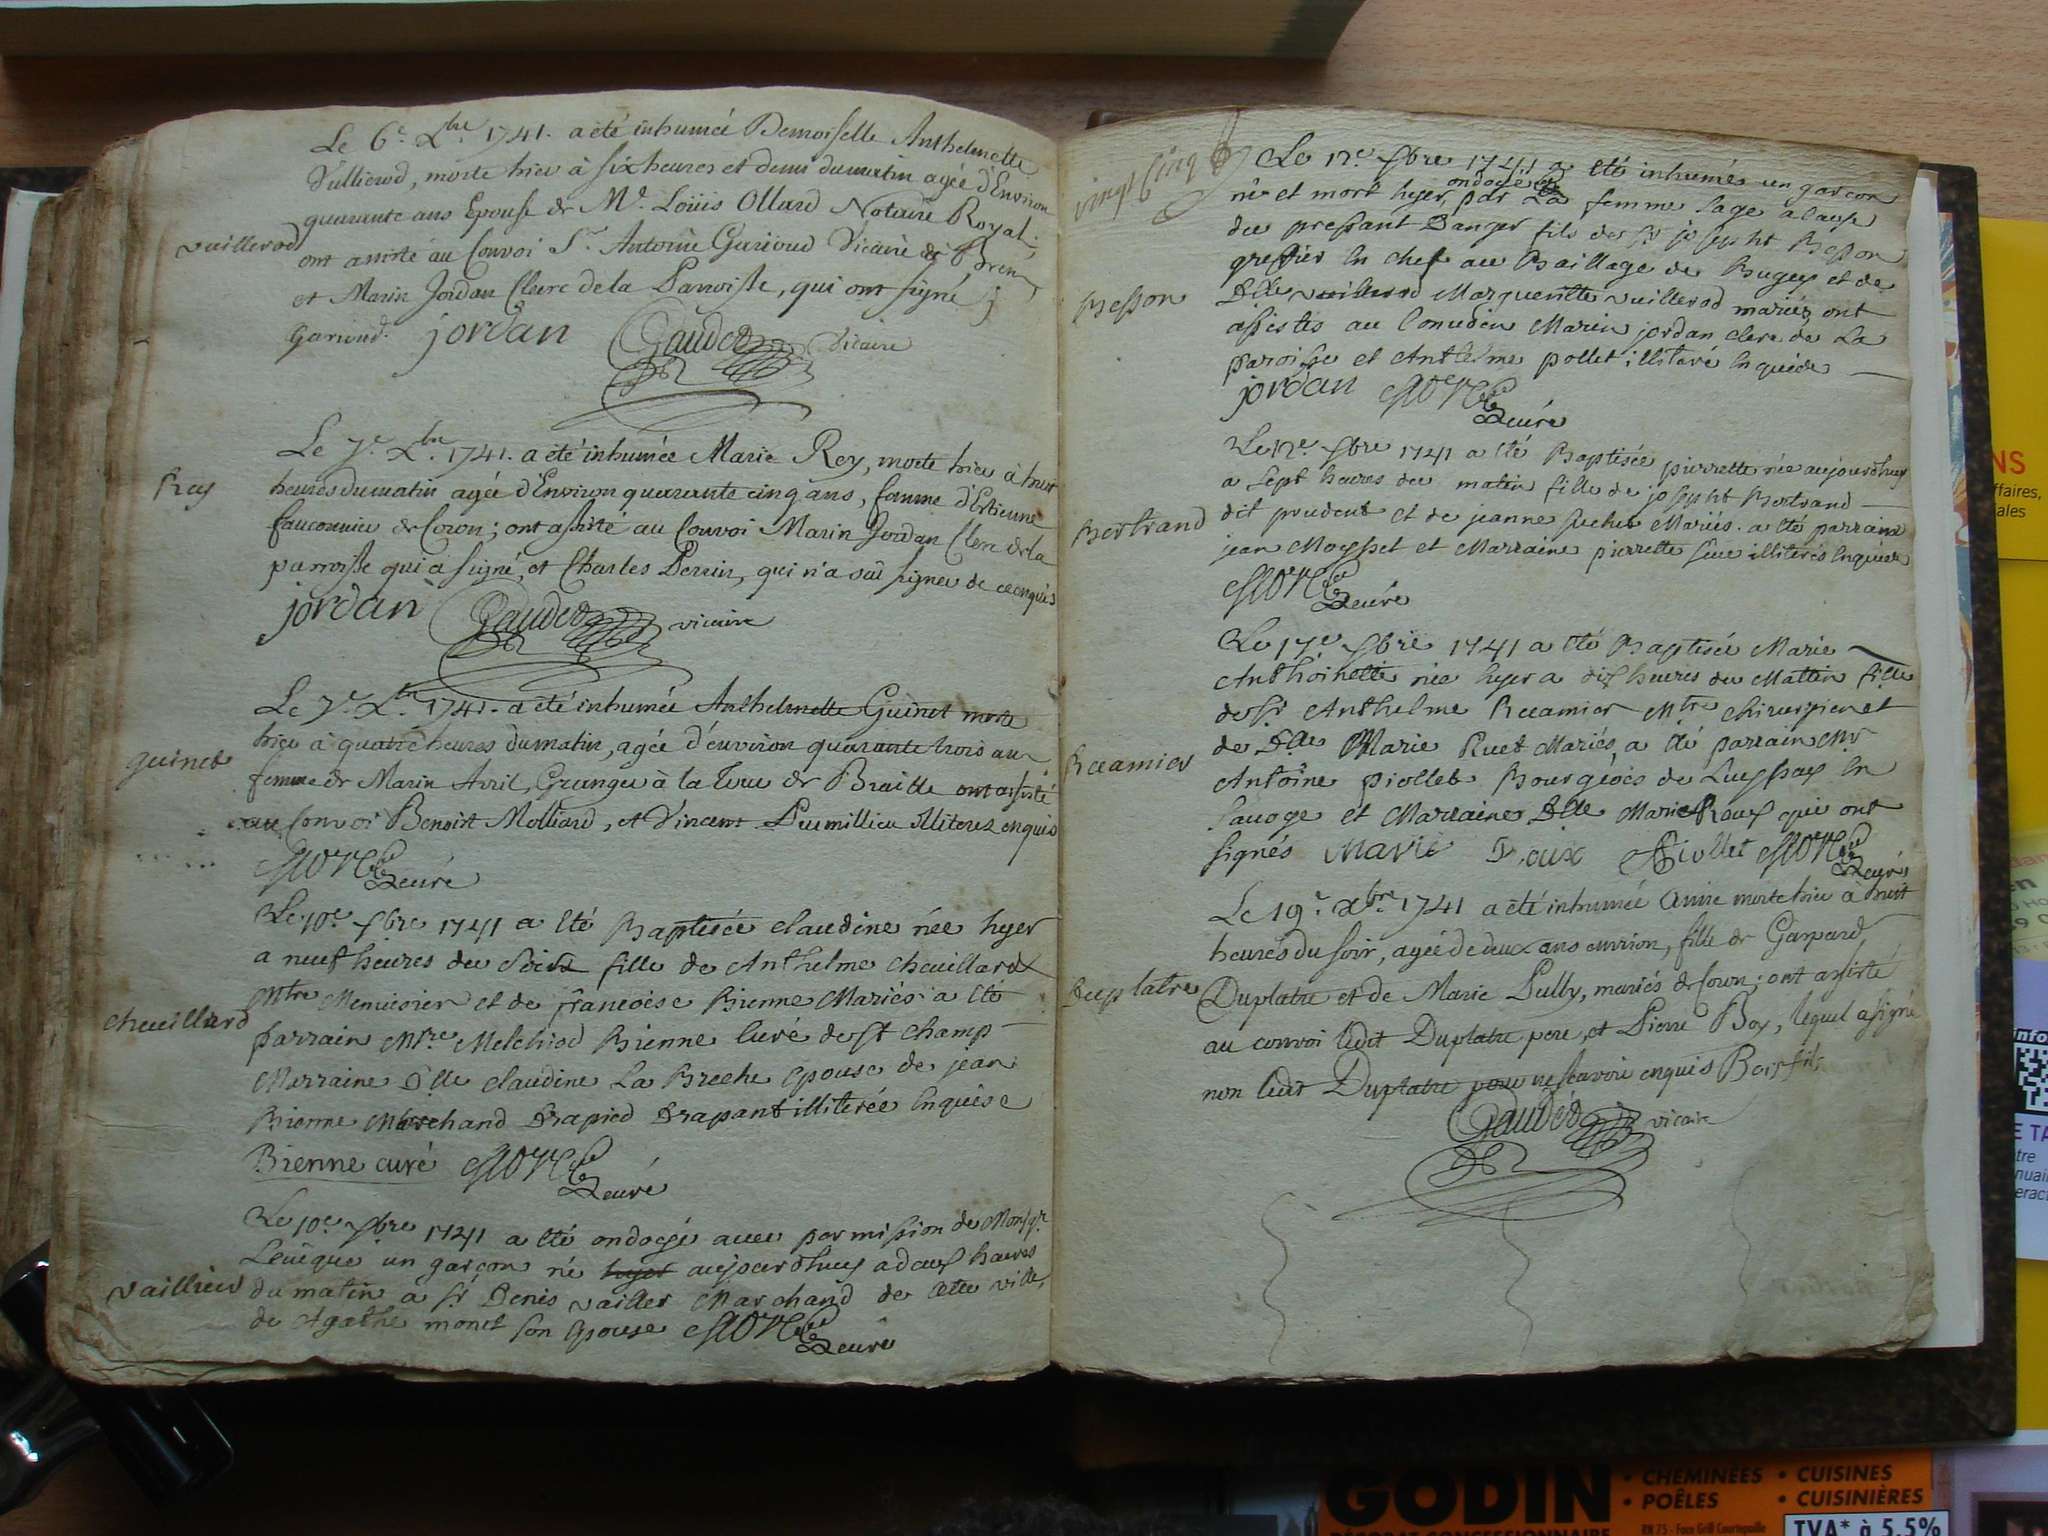 Le 6e. Xbre 1741. a été inhumée Demoiselle Anthelmette
Vullierod, morte hier à six heures et demi du matin agée d'Environ
quarante ans Epouse de Me. Loüis Ollard Notaire Royal;
vuillerod
ont assisté au Convoi Sr. Antoine Garioud Vicaire de
et Marin Jordan Clerc de la Parroisse, qui ont signé
Garioud. jordan Gaudet Vicaire
Le 7e. Xbre. 1741. a été inhumée Marie Rey, morte hier à huit
Rey
heures du matin agée d'Environ quarante cinq ans, femme d'Estienne
fauconnier de Coron; ont assisté au Convoi Marin Jordan Clerc de la
parroisse qui a signé, et Charles Perrin, qui n'a sçû signer de ce enquis
jordan Gaudet vicaire
Le 7e. Xbre. 1741. a été inhumée Anthelmette Guinet morte
hier à quatre heures du matin, agée d'environ quarante trois ans
guinet
femme de Marin Avril, Granger à la Tour de Braille ont assisté
au Convoi Benoist Molliard, et Vincent Pumillieu illiterez enquis
curé
Le 10e xbre 1741 a été Baptisée claudine née hyer
a neuf heures du Soir fille de Anthelme Cheuillard
Mtre Menuisier et de françoise Bienne Mariés a été
cheuillard
parrain Mre Melchiod Bienne Curé de St champ
Marraine Dlle claudine La Breche epouse de jean
Bienne Marchand Drapied Drapant illiterée Enquise
Bienne curé curé
Le 10e xbre 1741 a été ondoyé auec permission de Monsgr
Leuêque un garçon né hyer aujourdhuy a deux heures
vaillier
du matin a Sr Denis vailler Marchand de cette ville,
de Agathe monet son Epouse curé
vingt cinq
Le 12e xbre 1741 a été inhumé un garçon
né et mort hyer, ondoyé par La femme Sage a cause
du pressant Danger fils de Sr josepht Besson
greffier En chef au Baillage de Bugey et de
Besson
Dlle vuillerod Margueritte vuillerod mariez ont
assistés au Conuoi Marin jordan clerc de La
paroisse et Antelme pollet illiteré Enquis
jordan curé
Le 12e xbre 1741 a été Baptisée pierrette née aujourdhuy
a Sept heures du matin fille de josepht Bertrand
Bertrand
dit prudent et de jeanne Mariés. a été parrain
jean Moysset et Marraine pierrette illiterés Enquis
curé
Le 17e xbre 1741 a été Baptisée Marie
Anthoinette née hyer a dix heures du Mattin fille
de Sr Anthelme Récamier Mtre chirurgien et
Récamier
de Dlle Marie Ruet Mariés a été parrain Mr
Antoine piollet Bourgeois de Luyssay En
Sauoye et Marraine Dlle Marie Roux qui ont
signés Marie Roux Piollet curé
Le 19e. Xbre. 1741 a été inhumée Anne morte hier à huit
heures du soir, agée de deux ans environ, fille de Gaspard
duplatre
Duplatre et de Marie Pully, mariés de Coron; ont assisté
au convoi ledit Duplatre pere, et Pierre Boy, lequel a signé
non ledit Duplatre pour ne scavoir enquis Boy fils
Gaudet vicaire
NS
ffaires,
ales
GODIN
• CHEMINÉES • CUISINES
• POÊLES • CUISINIÈRES
TVA* à 5,5%